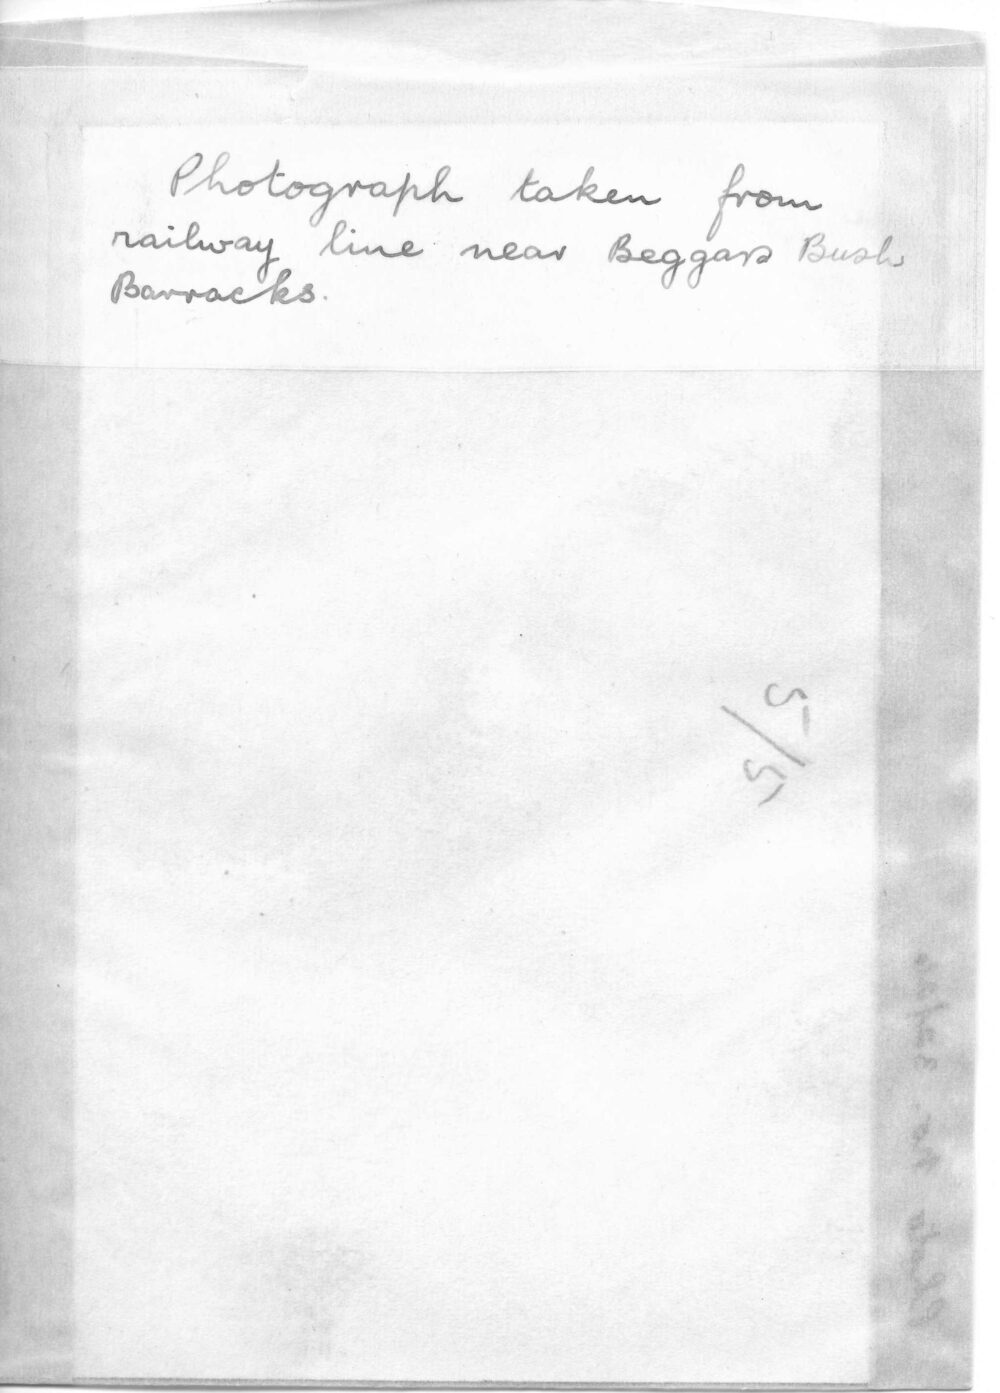 Photograph taken from
railway line near Beggars Bush
Barracks.
5/5